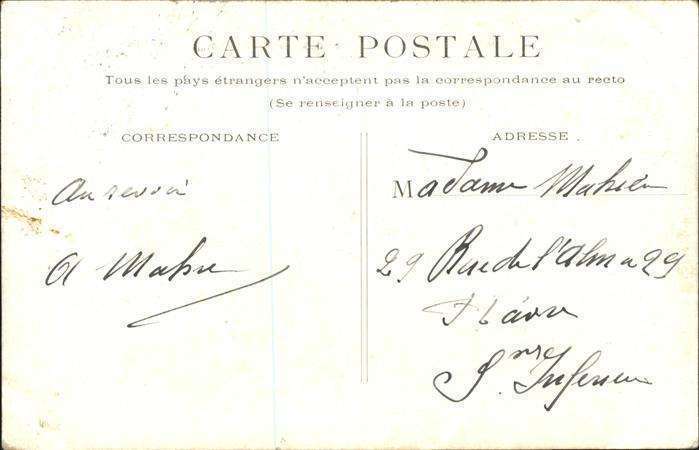 CARTE POSTALE
Tous les pays étrangers n'acceptent pas la correspondance au recto
(Se renseigner à la poste)
CORRESPONDANCE
Au revoir
A
ADRESSE.
Madame Mahieu
29 Rue de l'Alma 29
Havre
Inférieure